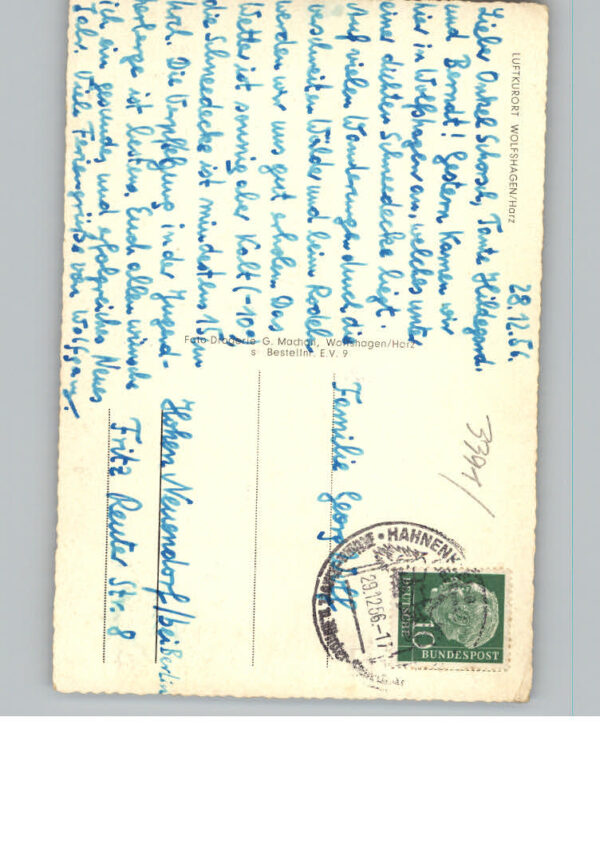 LUFTKURORT WOLFSHAGEN/Harz
28.12.56.
Lieber Onkel Schorsch, Tante Hildegard
und Berndt! Gestern kamen wir
hier in Wolfshagen an, welches unter
einer dichten Schneedecke liegt.
Auf vielen Wanderungen durch die
verschneiten Wälder und beim Rodeln
werden wir uns gut erholen. Das
Wetter ist sonnig aber kalt (-10°)
die Schneedecke ist mindestens 15 cm
hoch. Die Verpflegung in der Jugend-
herberge ist bestens. Euch allen wünsche
ich ein gesundes und erfolgreiches Neues
Jahr. Viele Feriengrüße von Wolfgang.
Foto-Drogerie G. Machon, Wolfshagen/Harz
s Bestellnr. E.V. 9
3391/
Familie Georg
Hohen Neuendorf/bei Berlin
Fritz Reuter Str. 8
HAHNENK
29.12.56.-17
DEUTSCHE
10
BUNDESPOST